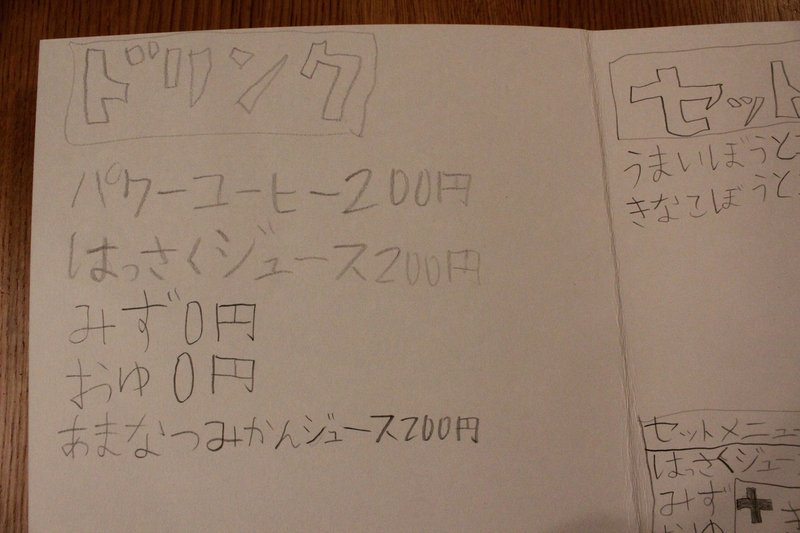 ドリンク
パワーコーヒー200円
はっさくジュース200円
みず0円
おゆ0円
あまなつみかんジュース200円
セット
うまいぼうと
きなこぼうと
セットメニュー
はっさくジュー
みず
おゆ
+
き